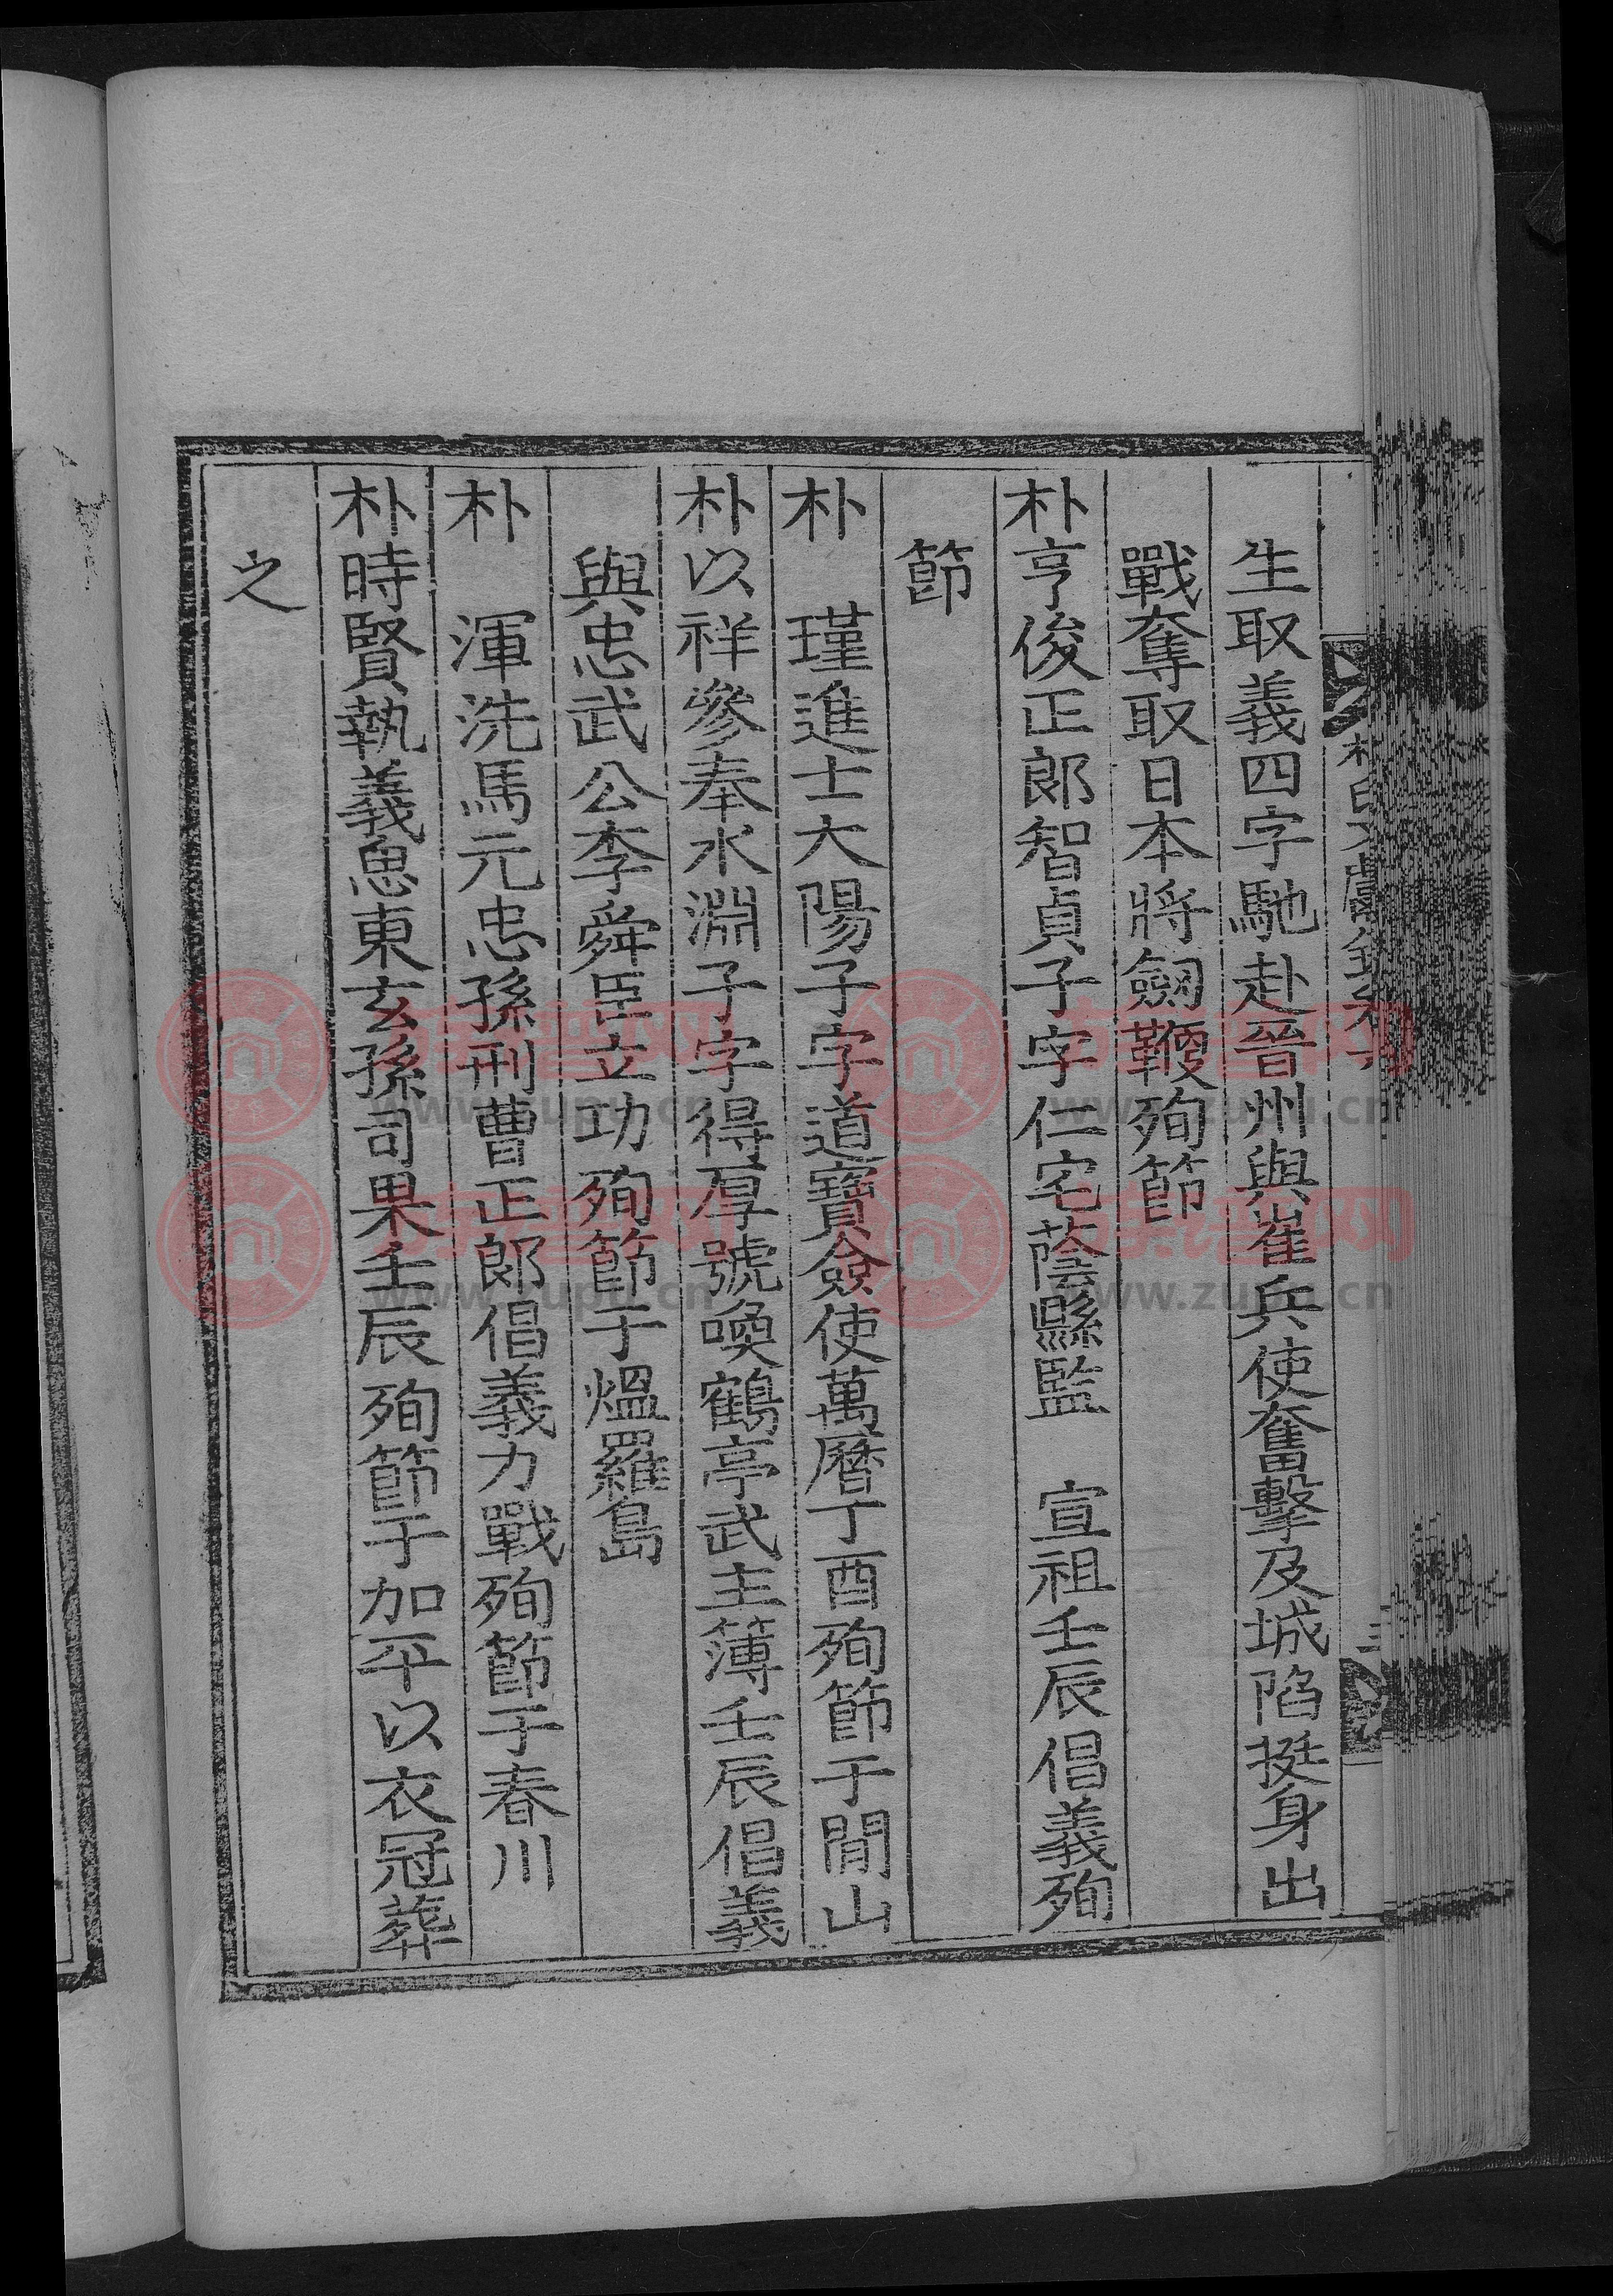 生取義四字馳赴晉州與崔兵使奮擊及城陷挺身出
戰奪取日本將劒鞭殉節
朴亨俊正郞智貞子字仁宅蔭縣監　宣祖壬辰倡義殉
節
朴　瑾進士大陽子字道寶僉使萬曆丁酉殉節于閒山
朴以祥參奉水淵子字得厚號喚鶴亭武主簿壬辰倡義
與忠武公李舜臣立功殉節于熅羅島
朴　渾洗馬元忠孫刑曹正郞倡義力戰殉節于春川
朴時賢執義愚東玄孫司果壬辰殉節于加平以衣冠葬
之
www.zupu.cn
www.zupu.cn
www.zupu.cn
www.zupu.cn